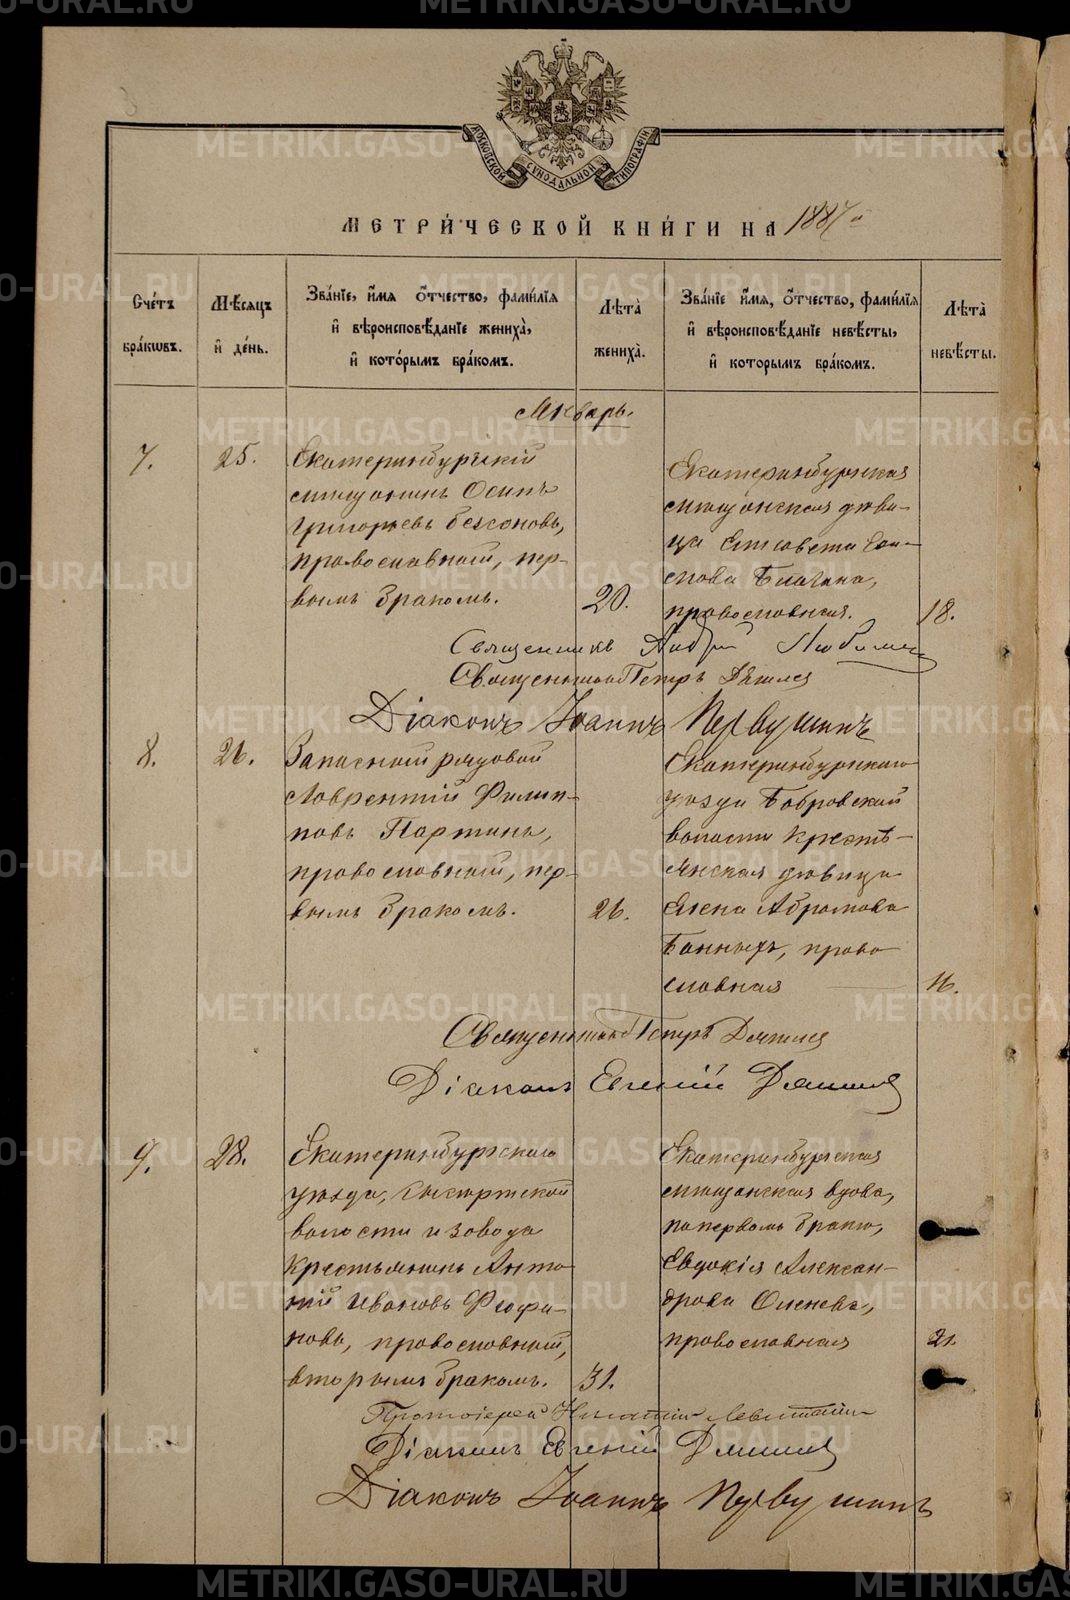 МОСКОВСКОЙ СѴНОДАЛЬНОЙ ТИПОГРАФІИ
МЕТРИ́ЧЕСКОЙ КНИ́ГИ НА 1887й
Сче́тъ бра́кѡвъ.
Мѣ́сяцъ и҆ де́нь.
Зва́нїе, и҆́мя Ѻ҆́тчество, фами́лїя и҆ вѣроисповѣ́данїе жениха̀, и҆ кото́рымъ бра́комъ.
Лѣ́та жениха̀.
Зва́нїе и҆́мя, Ѻ҆́тчество, фами́лїя и҆ вѣроисповѣ́данїе невѣ́сты, и҆ которымъ бра́комъ.
Лѣ́та невѣ́сты.
Январь.
7.
25.
Екатеринбургскій
мѣщанинъ Осипъ
Григорьевъ Безсоновъ,
православный, пер-
вымъ бракомъ.
20.
Екатеринбургская
мѣщанская дѣви-
ца Елисавета
православная.
18.
Священникъ
Священникъ Петръ
Діаконъ Іоаннъ Первушинъ
8.
26.
Запасной рядовой
Лаврентій Филип-
повъ Партинъ,
православный, пер-
вымъ бракомъ.
26.
Екатеринбургскаго
уѣзда Бобровской
волости крестъ-
янская дѣвица
Елена Абрамова
Банныхъ, право
славная
Священникъ Петръ
Діаконъ Евгеній
9.
28.
Екатеринбургскаго
уѣзда, Сысертской
волости и завода
крестьянинъ Анто
ній Ивановъ Феофи-
новъ, православный,
вторымъ бракомъ.
31.
Екатеринбургская
мѣщанская вдова,
по первомъ бракѣ,
Евдокія Алексан-
дрова Оленева,
православная
21.
Протоіерей Игнатій Левитскій
Діаконъ Евгеній
Діаконъ Іоаннъ Первушинъ
METRIKI.GASO-URAL.RU